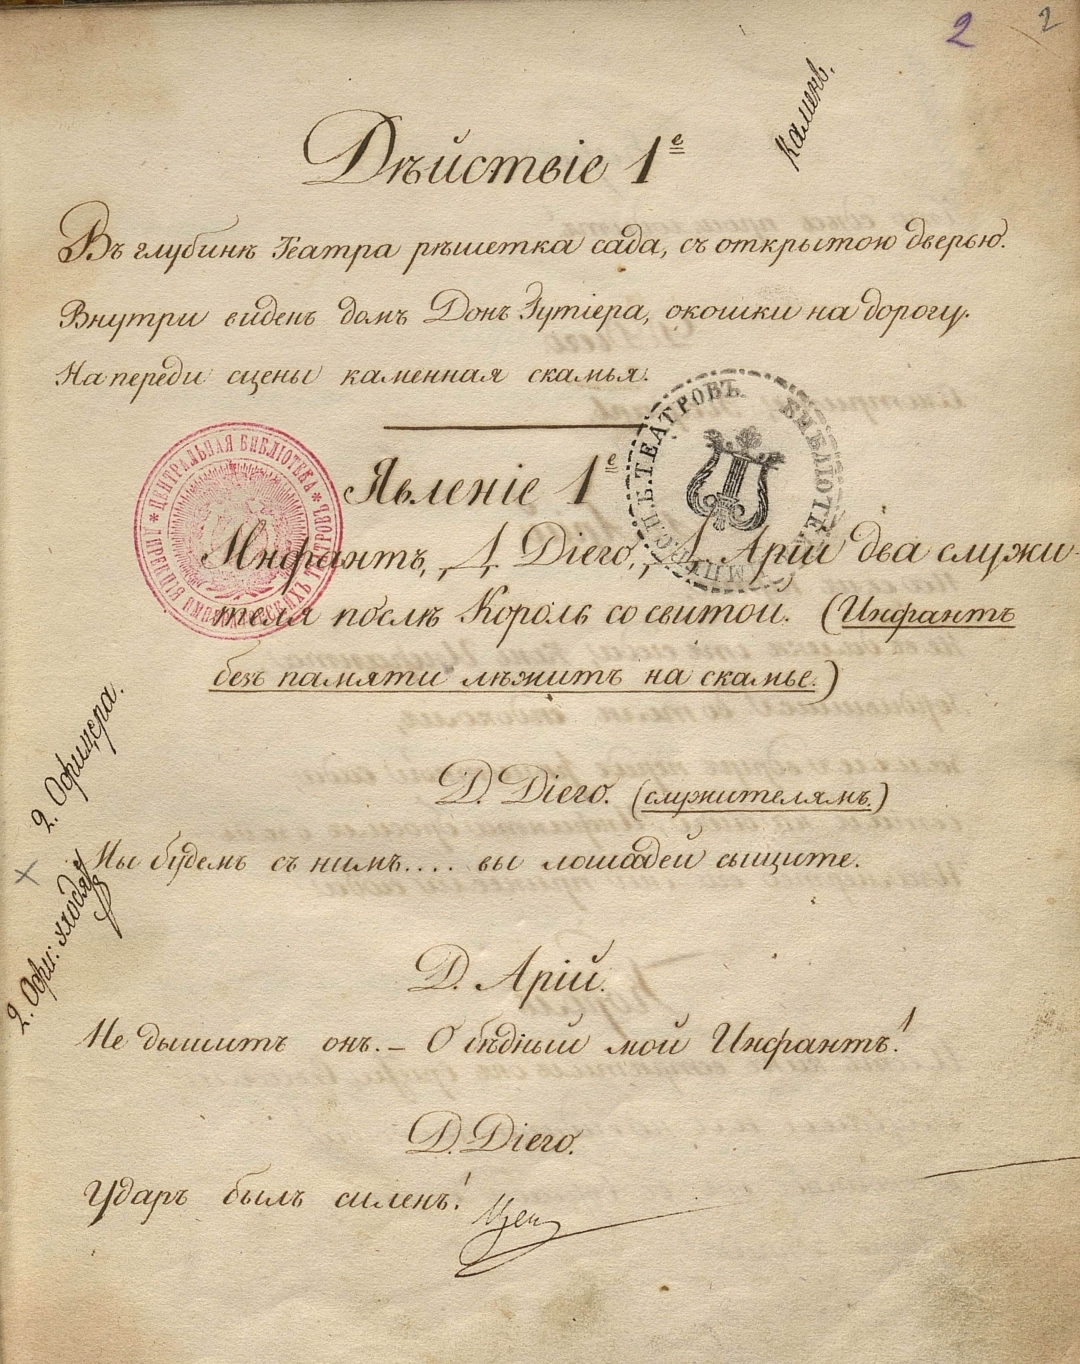 2 2
Камень.
Дѣйствіе 1е
Въ глубинѣ Театра рѣшетка сада, съ открытою дверью.
Внутри виденъ домъ Донъ Гутіера, окошки на дорогу.
На переди сцены каменная скамья.
ЦЕНТРАЛЬНАЯ БИБЛІОТЕКА ИМПЕРАТОРСКИХЪ ТЕАТРОВЪ
БИБЛІОТЕ ИМП. С.П.Б. ТЕАТРОВЪ
Явленіе 1е
Инфантъ, Д. Діего, Д. Арій два служи-
теля послѣ Король со свитой. (Инфантъ
безъ памяти лѣжитъ на скамье.)
2. Офицера.
Д. Діего. (служителямъ.)
Мы будемъ съ нимъ.... вы лошадей сыщите.
2. Офи: уходят
Д. Арій.
Не дышитъ онъ. – О бѣдный мой Инфантъ!
Д. Діего.
Ударъ былъ силенъ!